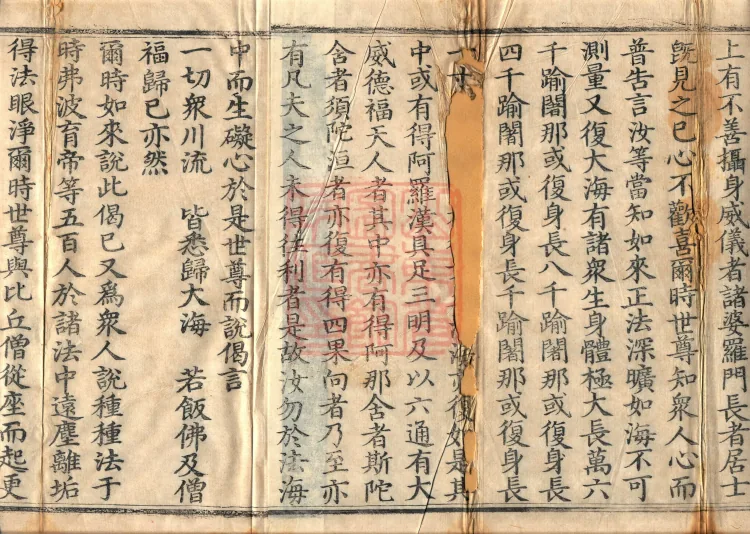 上有不善攝身威儀者諸婆羅門長者居士
旣見之已心不歡喜爾時世尊知衆人心而
普告言汝等當知如來正法深曠如海不可
測量又復大海有諸衆生身體極大長萬六
千踰闍那或復身長八千踰闍那或復身長
四千踰闍那或復身長千踰闍那或復身長
海亦復如是其
中或有得阿羅漢具足三明及以六通有大
威德福天人者其中亦有得阿那舍者斯陀
舍者須陀洹者亦復有得四果向者乃至亦
有凡夫之人未得往利者是故汝勿於法海
中而生礙心於是世尊而說偈言
一切衆川流　皆悉歸大海　若飯佛及僧
福歸已亦然
爾時如來說此偈已又爲衆人說種種法于
時弗波育帝等五百人於諸法中遠塵離垢
得法眼淨爾時世尊與比丘僧從座而起更